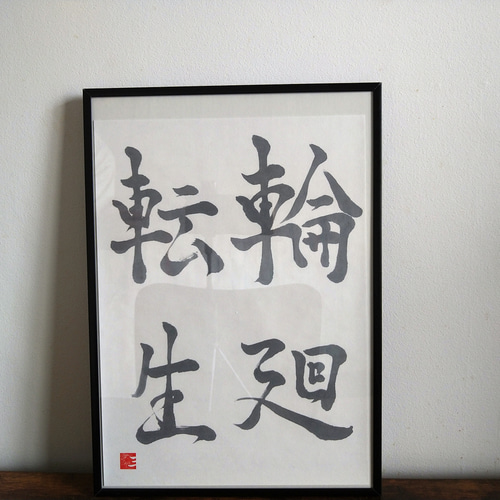 輪廻
転生